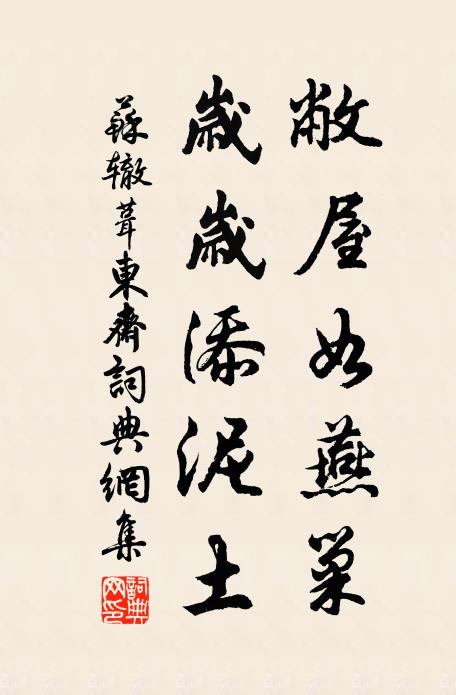 敝屋如燕巢
歲歲添泥土
蘇轍葺東齋詞典網集
詞典网印